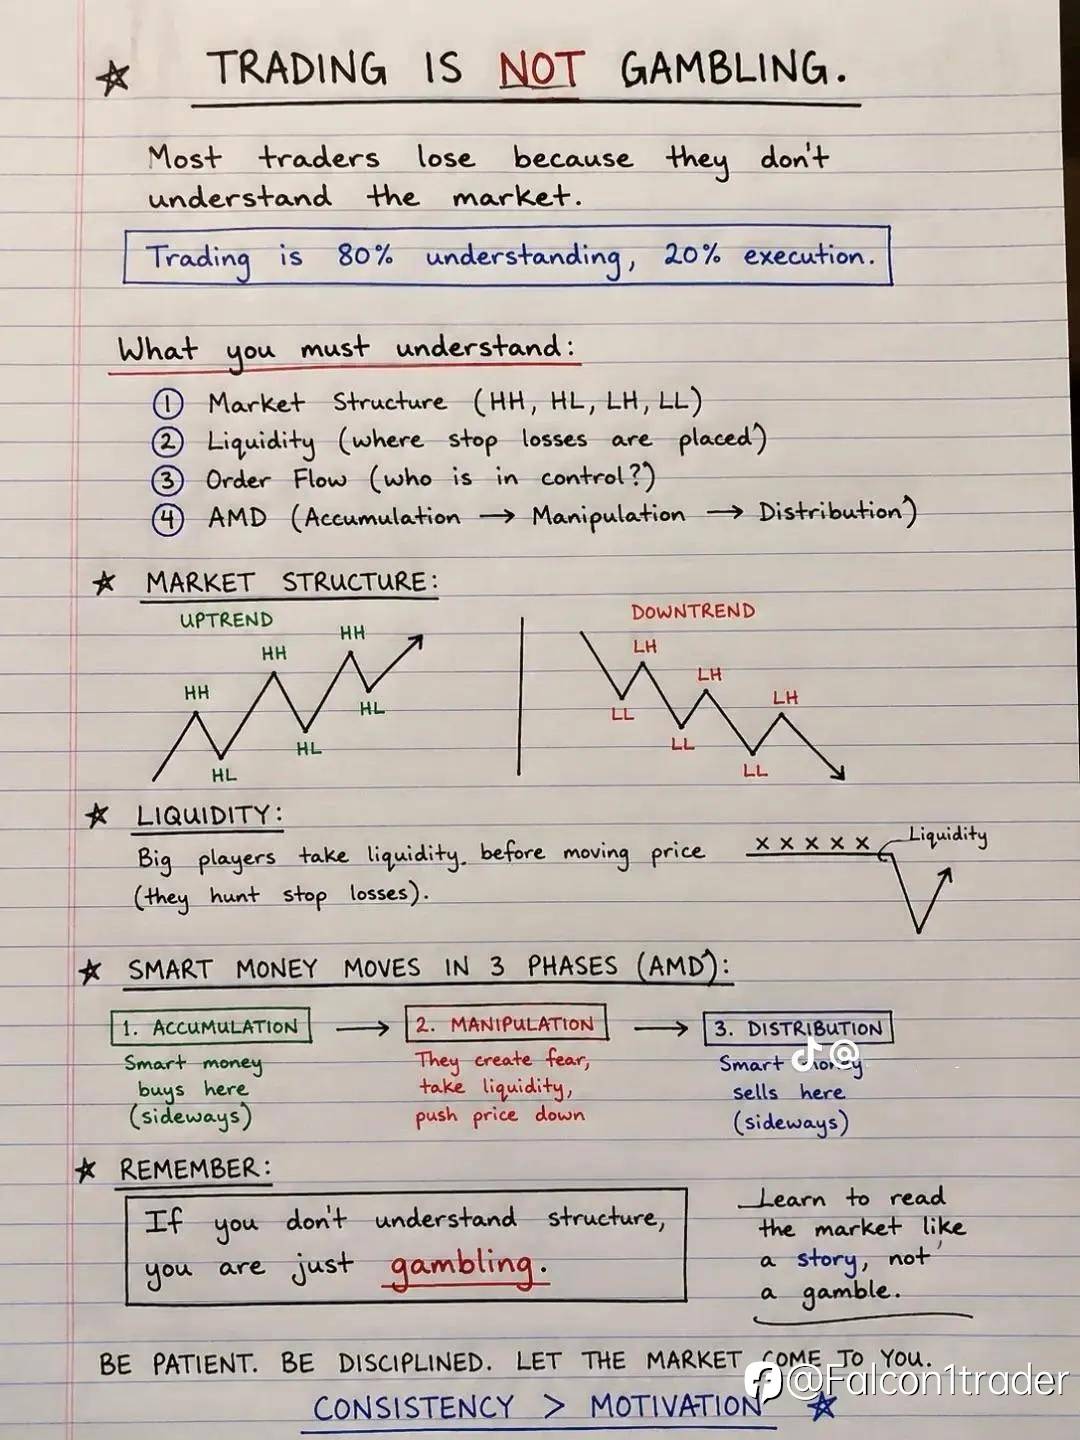 TRADING IS NOT GAMBLING.
Most traders lose because they don't
understand the market.
Trading is 80% understanding, 20% execution.
What you must understand:
1 Market Structure (HH, HL, LH, LL)
2 Liquidity (where stop losses are placed)
3 Order Flow (who is in control?)
4 AMD (Accumulation → Manipulation → Distribution)
MARKET STRUCTURE:
UPTREND
HH
HH
HH
HL
HL
HL
DOWNTREND
LH
LH
LH
LL
LL
LL
LIQUIDITY:
Big players take liquidity. before moving price
(they hunt stop losses).
x x x x x Liquidity
SMART MONEY MOVES IN 3 PHASES (AMD):
1. ACCUMULATION → 2. MANIPULATION → 3. DISTRIBUTION
Smart money
buys here
(sideways)
They create fear,
take liquidity,
push price down
Smart money
sells here
(sideways)
REMEMBER:
If you don't understand structure,
you are just gambling.
Learn to read
the market like
a story, not
a gamble.
BE PATIENT. BE DISCIPLINED. LET THE MARKET COME TO YOU.
CONSISTENCY > MOTIVATION
@
@Falcon1trader